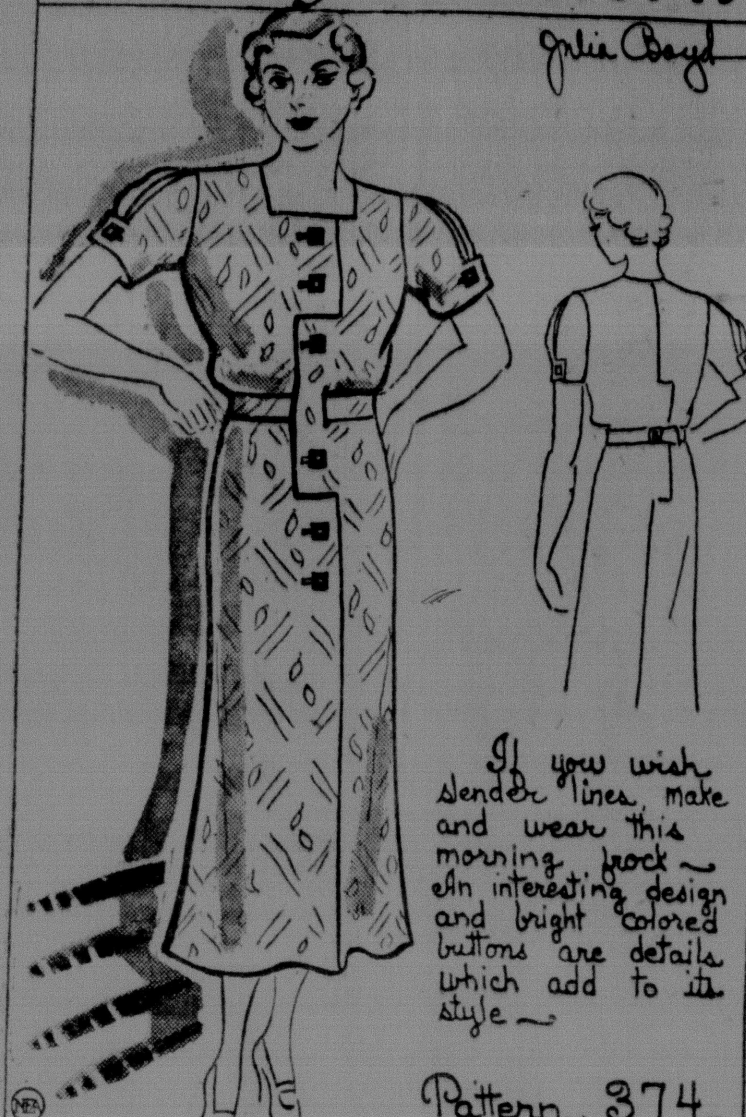 Julia Boyd
If you wish
slender lines, make
and wear this
morning frock ~
An interesting design
and bright colored
buttons are details
which add to its
style ~
Pattern 374
NEA